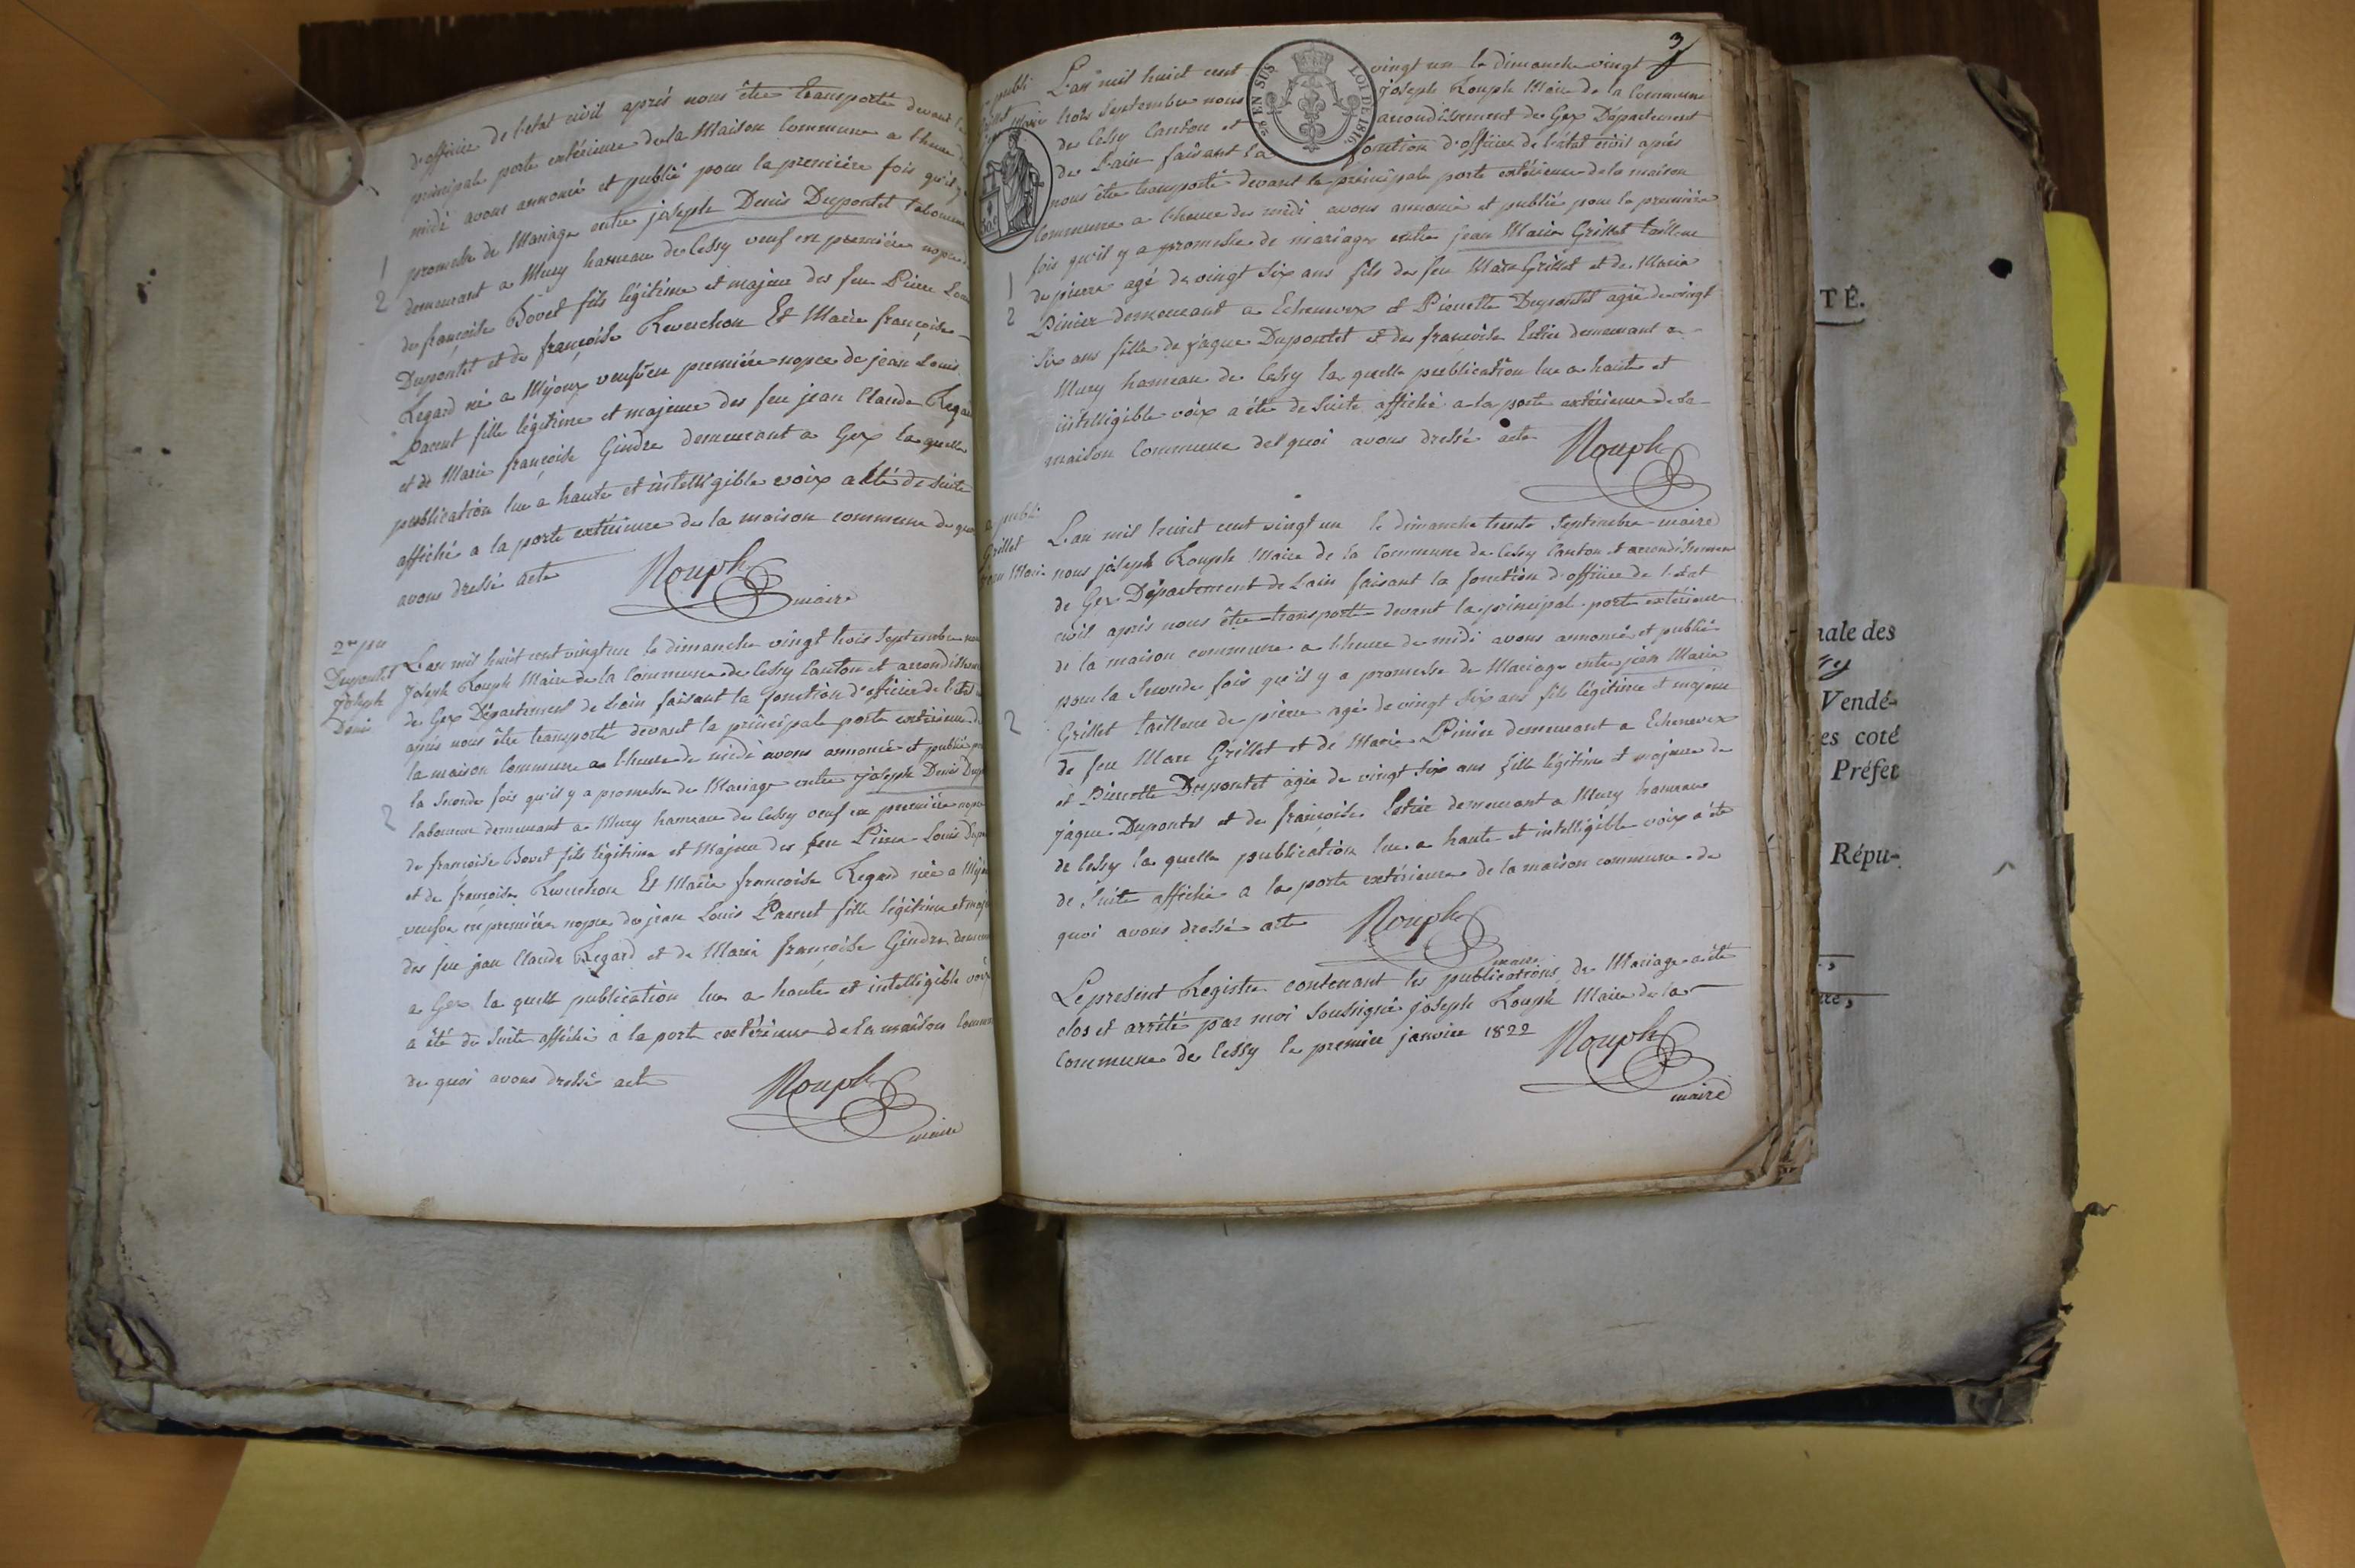 d'officier de l'etat civil aprés nous être transporté devant la
principale porte extérieure de la Maison Commune a l'heure de
midi avons annoncé et publié pour la premiére fois qu'il y a
1 promesse de Mariage entre joseph Denis Dupontet laboureur
2 demeurant a Mury hameau de Cessy veuf en premiére nopce
de françoise Bovet fils légitime et majeur des feu Pierre Louis
Dupontet et de françoise Reverchon Et Marie françoise
Regard né a Mijoux veufve en premiére nopce de jean Louis
Parent fille légitime et majeure des feu jean Claude Regard
et de Marie françoise Gindre demeurant a Gex la quelle
publication lue a haute et intelligible voix a été de suite
affiché a la porte extérieure de la maison commune de quoi
avons dressé acte
Rouph
maire
2me pu
Dupontet
Joseph
Denis
L'an mil huit cent vingt un le dimanche vingt trois Septembre nous
Joseph Rouph Maire de la Commune de Cessy Canton et arrondissement
de Gex Département de l'ain faisant la fonction d'officier de l'etat
aprés nous être transporté devant la principale porte extérieure de
la maison Commune a l'heure de midi avons annoncé et publié pour
la Seconde fois qu'il y a promesse de Mariage entre joseph Denis
2 laboureur demeurant a Mury hameau de Cessy veuf en premiére nopce
de françoise Bovet fils légitime et Majeur des feu Pierre Louis
et de françoise Reverchon Et Marie françoise Regard née a Mijoux
veufve en premiére nopce de jean Louis Parent fille légitime et
des feu jean Claude Regard et de Marie françoise Gindre
a Gex la quelle publication lue a haute et intelligible voix
a été de Suite affiché a la porte extérieure de la maison Commune
de quoi avons dressé acte
Rouph
maire
3
publi
Grillet
Marie
EN SUS
LOI DE 1816
L'an mil huit cent vingt un le dimanche vingt
trois Septembre nous joseph Rouph Maire de la Commune
de Cessy Canton et arrondissement de Gex Département
de L'ain faisant la fonction d'officier de l'état civil aprés
nous être transporté devant la principale porte extérieure de la maison
Commune a l'heure de midi avons annoncé et publié pour la premiére
fois qu'il y a promesse de mariage entre jean Marie Grillet tailleur
1 de pierre agé de vingt six ans fils de feu Marc Grillet et de Marie
2 Pinier demeurant a Echenevex et Pierrette Dupontet agée de vingt
six ans fille de jaque Dupontet et de françoise Estier demeurant a
Mury hameau de Cessy la quelle publication lue a haute et
intelligible voix a été de Suite affiché a la porte extérieure de la
maison Commune de quoi avons dressé acte
Rouph
publi
Grillet
jean Marie
L'an mil huit cent vingt un le dimanche trente Septembre maire
nous joseph Rouph Maire de la Commune de Cessy Canton et arrondissement
de Gex Département de L'ain faisant la fonction d'officier de l'etat
civil aprés nous être transporté devant la principal porte extérieure
de la maison commune a l'heure de midi avons annoncé et publié
pour la Seconde fois qu'il y a promesse de Mariage entre jean Marie
2 Grillet tailleur de pierre agé de vingt six ans fils légitime et majeur
de feu Marc Grillet et de Marie Pinier demeurant a Echenevex
et Pierrette Dupontet agée de vingt six ans fille légitime et majeure de
jaque Dupontet et de françoise Estier demeurant a Mury hameau
de Cessy la quelle publication lue a haute et intelligible voix a été
de Suite affiché a la porte extérieure de la maison commune de
quoi avons dressé acte
Rouph
maire
Le present Registre contenant les publications de Mariage a été
clos et arrêté par moi Soussigné joseph Rouph Maire de la
Commune de Cessy le premier janvier 1822
Rouph
maire
TÉ.
nale des
Vendé-
es coté
Préfet
Répu-